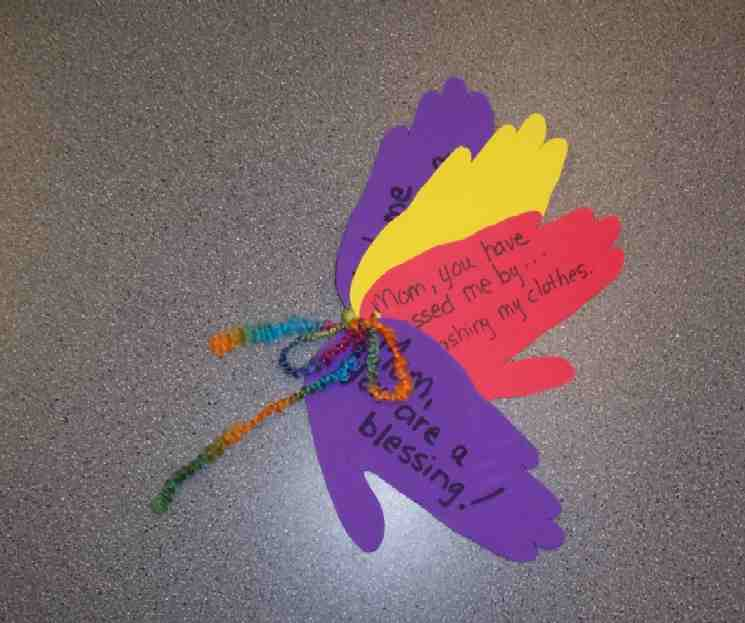 me
Mom, you have
ssed me by...
ashing my clothes.
Mom,
are a
blessing!